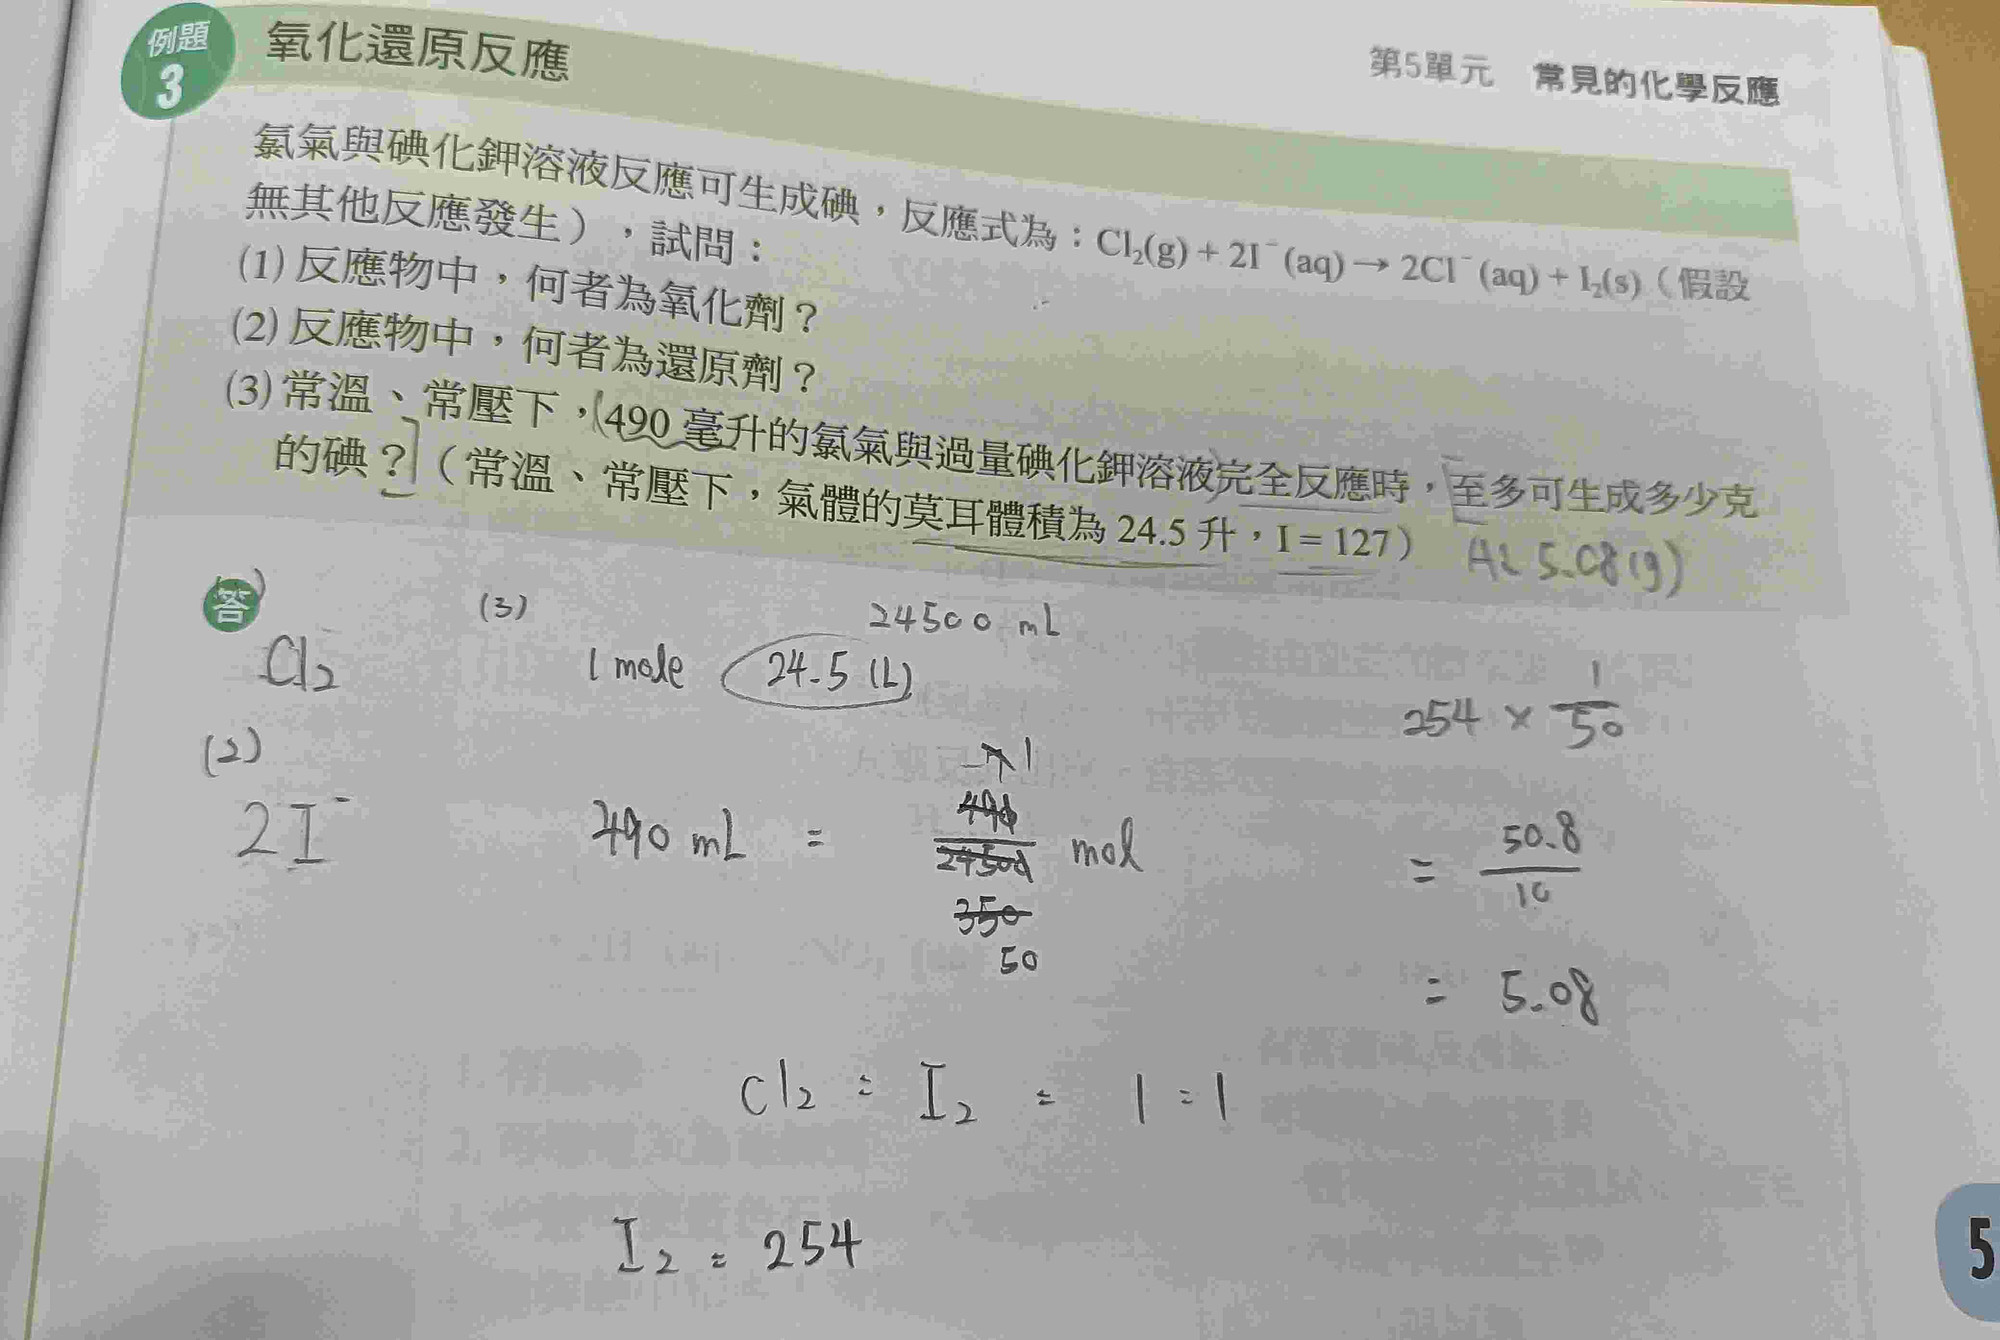 例題
3
氧化還原反應
第5單元 常見的化學反應
氯氣與碘化鉀溶液反應可生成碘，反應式為：Cl₂(g) + 2I⁻(aq) → 2Cl⁻(aq) + I₂(s)（假設
無其他反應發生），試問：
(1) 反應物中，何者為氧化劑？
(2) 反應物中，何者為還原劑？
(3) 常溫、常壓下，490 毫升的氯氣與過量碘化鉀溶液完全反應時，至多可生成多少克
的碘？（常溫、常壓下，氣體的莫耳體積為 24.5 升，I = 127）
5.08(g)
答
Cl₂
(3)
24500 mL
1 mole 24.5 (L)
254 × 1/50
(2)
2I⁻
1
490 mL = 490/24500 mol
350
50
= 50.8/10
= 5.08
Cl₂ : I₂ = 1 : 1
I₂ = 254
5